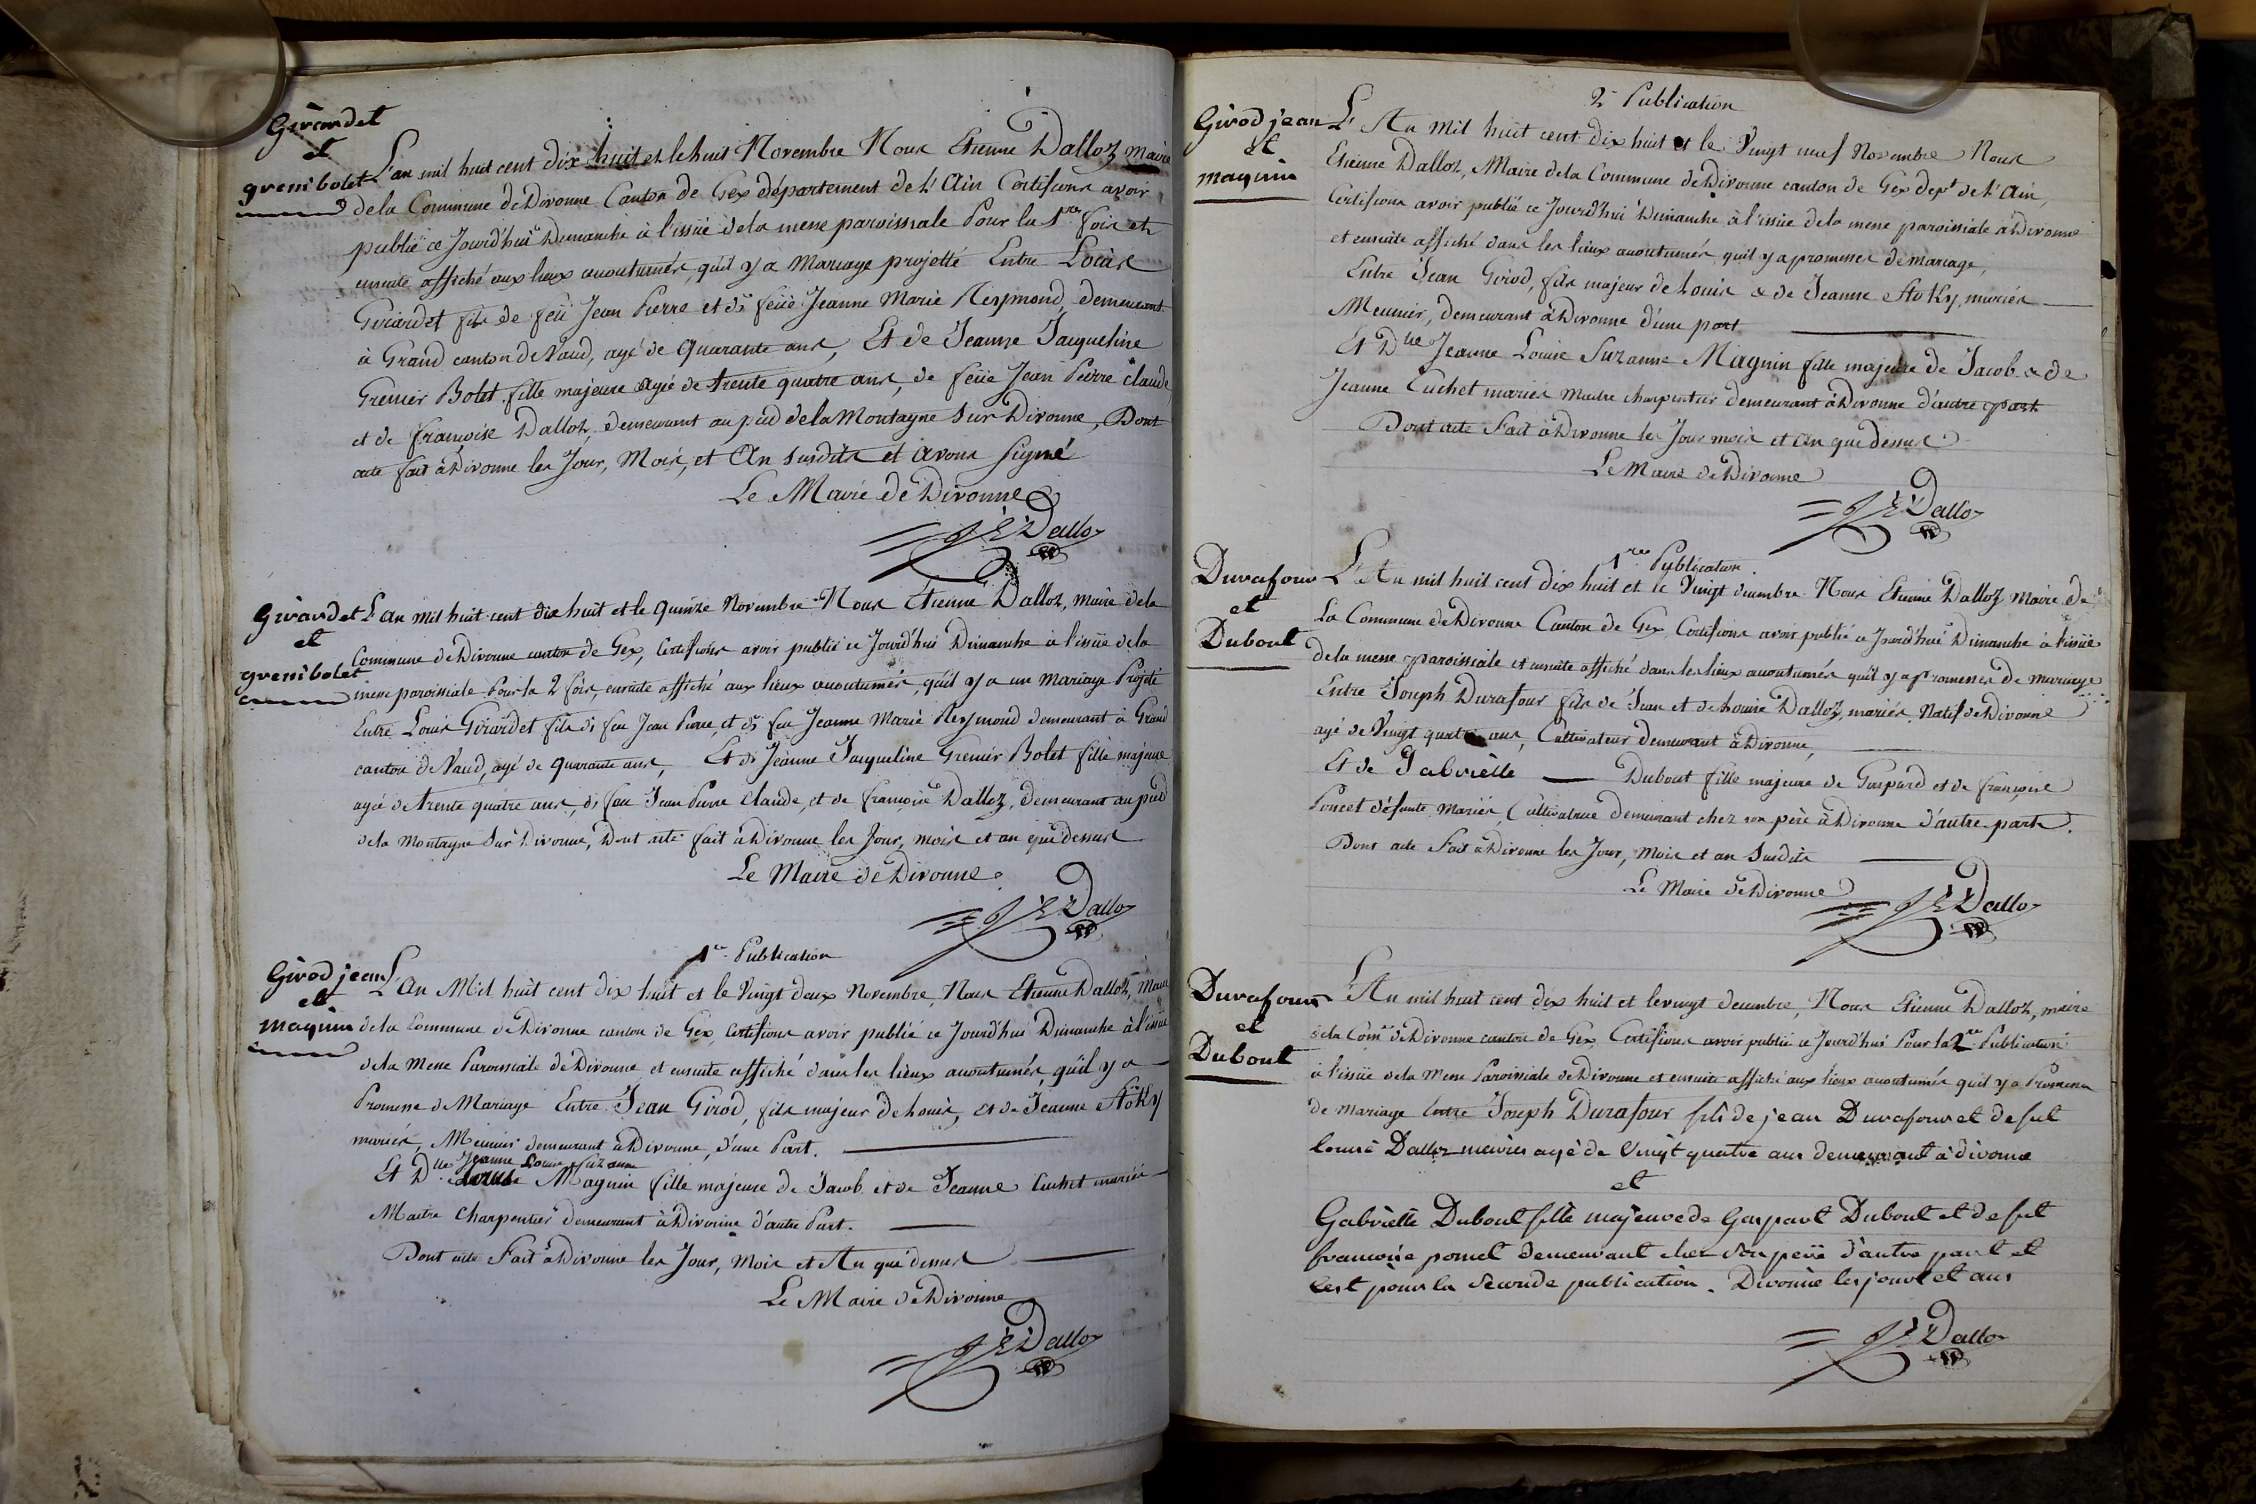 Girardet
et
grenibolet
L'an mil huit cent dix huit et le huit Novembre Nous Etienne Dalloz maire
de la Commune de Divonne Canton de Gex département de l'Ain Certifions avoir
publié ce Jourd'hui Dimanche à l'issüe de la messe paroissiale Pour la 1re fois et
ensuite affiché aux lieux accoutumés, qu'il y a Mariage projetté Entre Louis
Girardet fils de feü Jean Pierre et de feüe Jeanne Marie Reymond, demeurant
à Grand canton de Vaud, agé de Quarante ans, Et de Jeanne Jacqueline
Grenier Bolet fille majeure agée de trente quatre ans, de feüe Jean Pierre Claude
et de françoise Dalloz, demeurant au pied de la Montagne sur Divonne, Dont
acte fait à Divonne les Jour, Mois, et An susdits et avons signé
Le Maire de Divonne
Dalloz
Girardet
et
grenibolet
L'an mil huit cent dix huit et le quinze Novembre Nous Etienne Dalloz, maire de la
Commune de Divonne canton de Gex, Certifions avoir publié ce Jourd'hui Dimanche à l'issüe de la
messe paroissiale Pour la 2 fois, ensuite affiché aux lieux accoutumés, qu'il y a un Mariage Projeté
Entre Louis Girardet fils de feu Jean Pierre, et de feu Jeanne Marie Reymond demeurant à Grand
canton de Vaud, agé de quarante ans, Et de Jeanne Jacqueline Grenier Bolet fille majeure
agée de trente quatre ans, de feu Jean Pierre Claude, et de françoise Dalloz, demeurant au pied
de la Montagne sur Divonne, Dont acte fait à Divonne les Jour, mois et an que dessus
Le Maire de Divonne
Dalloz
1e Publication
Girod jean
et
magnin
L'An Mil huit cent dix huit et le Vingt deux Novembre, Nous Etienne Dalloz, Maire
de la Commune de Divonne canton de Gex Certifions avoir publié ce Jourd'hui Dimanche à l'issüe
de la Messe Paroissiale de Divonne et ensuite affiché dans les lieux accoutumés, qu'il y a
Promesse de Mariage Entre Jean Girod, fils majeur de Louis, et de Jeanne Stoky
mariés, Meunier demeurant à Divonne, d'une Part.
Jeanne Louise Suzanne
Et Dlle Magnin fille majeure de Jacob et de Jeanne Cuchet mariés
Maitre Charpentier demeurant à Divonne d'autre Part.
Dont acte Fait à Divonne les Jour, Mois et An que dessus
Le Maire de Divonne
Dalloz
2e Publication
Girod jean
et
magnin
L'An Mil huit cent dix huit et le Vingt neuf Novembre Nous
Etienne Dalloz, Maire de la Commune de Divonne canton de Gex dept de l'Ain,
Certifions avoir publié ce Jourd'hui Dimanche à l'issüe de la messe paroissiale à Divonne
et ensuite affiché dans les lieux accoutumés qu'il y a promesses de mariage,
Entre Jean Girod, fils majeur de Louis & de Jeanne Stoky, mariés
Meunier, demeurant à Divonne d'une part
Et Dlle Jeanne Louise Suzanne Magnin fille majeure de Jacob & de
Jeanne Cuchet mariés Maitre charpentier demeurant à Divonne d'autre part
Dont acte Fait à Divonne les Jour mois et An que dessus
Le Maire de Divonne
Dalloz
1re Publication
Durafour
et
Dubout
L'An mil huit cent dix huit et le Vingt decembre Nous Etienne Dalloz Maire de
La Commune de Divonne Canton de Gex, Certifions avoir publié ce Jourd'hui Dimanche à l'issüe
de la messe paroissiale et ensuite affiché dans les lieux accoutumés qu'il y a Promesses de Mariage
Entre Joseph Durafour fils de Jean et de Louise Dalloz, mariés, Natif de Divonne
agé de Vingt quatre ans, Cultivateur demeurant à Divonne,
Et de Gabrielle Dubout fille majeure de Gaspard et de françoise
Poncet défunte Mariés, Cultivatrice demeurant chez son père à Divonne d'autre part.
Dont acte Fait à Divonne les Jour, Mois et an susdits
Le Maire de Divonne
Dalloz
Durafour
et
Dubout
L'An mil huit cent dix huit et le vingt decembre, Nous Etienne Dalloz, maire
de la Comne de Divonne canton de Gex, Certifions avoir publié ce Jourd'hui Pour la 2me Publication
à l'issüe de la Messe Paroissiale de Divonne et ensuite affiché aux lieux accoutumés qu'il y a Promesses
de Mariage Entre Joseph Durafour fils de jean Durafour et de fut
louise Dalloz mariés agé de Vingt quatre ans demeurant à divonne
et
Gabrielle Dubout fille majeure de Gaspart Dubout et de fut
francoise poncet demeurant chez son père d'autre part et
Cest pour la seconde publication. Divonne les jour et ans
Dalloz